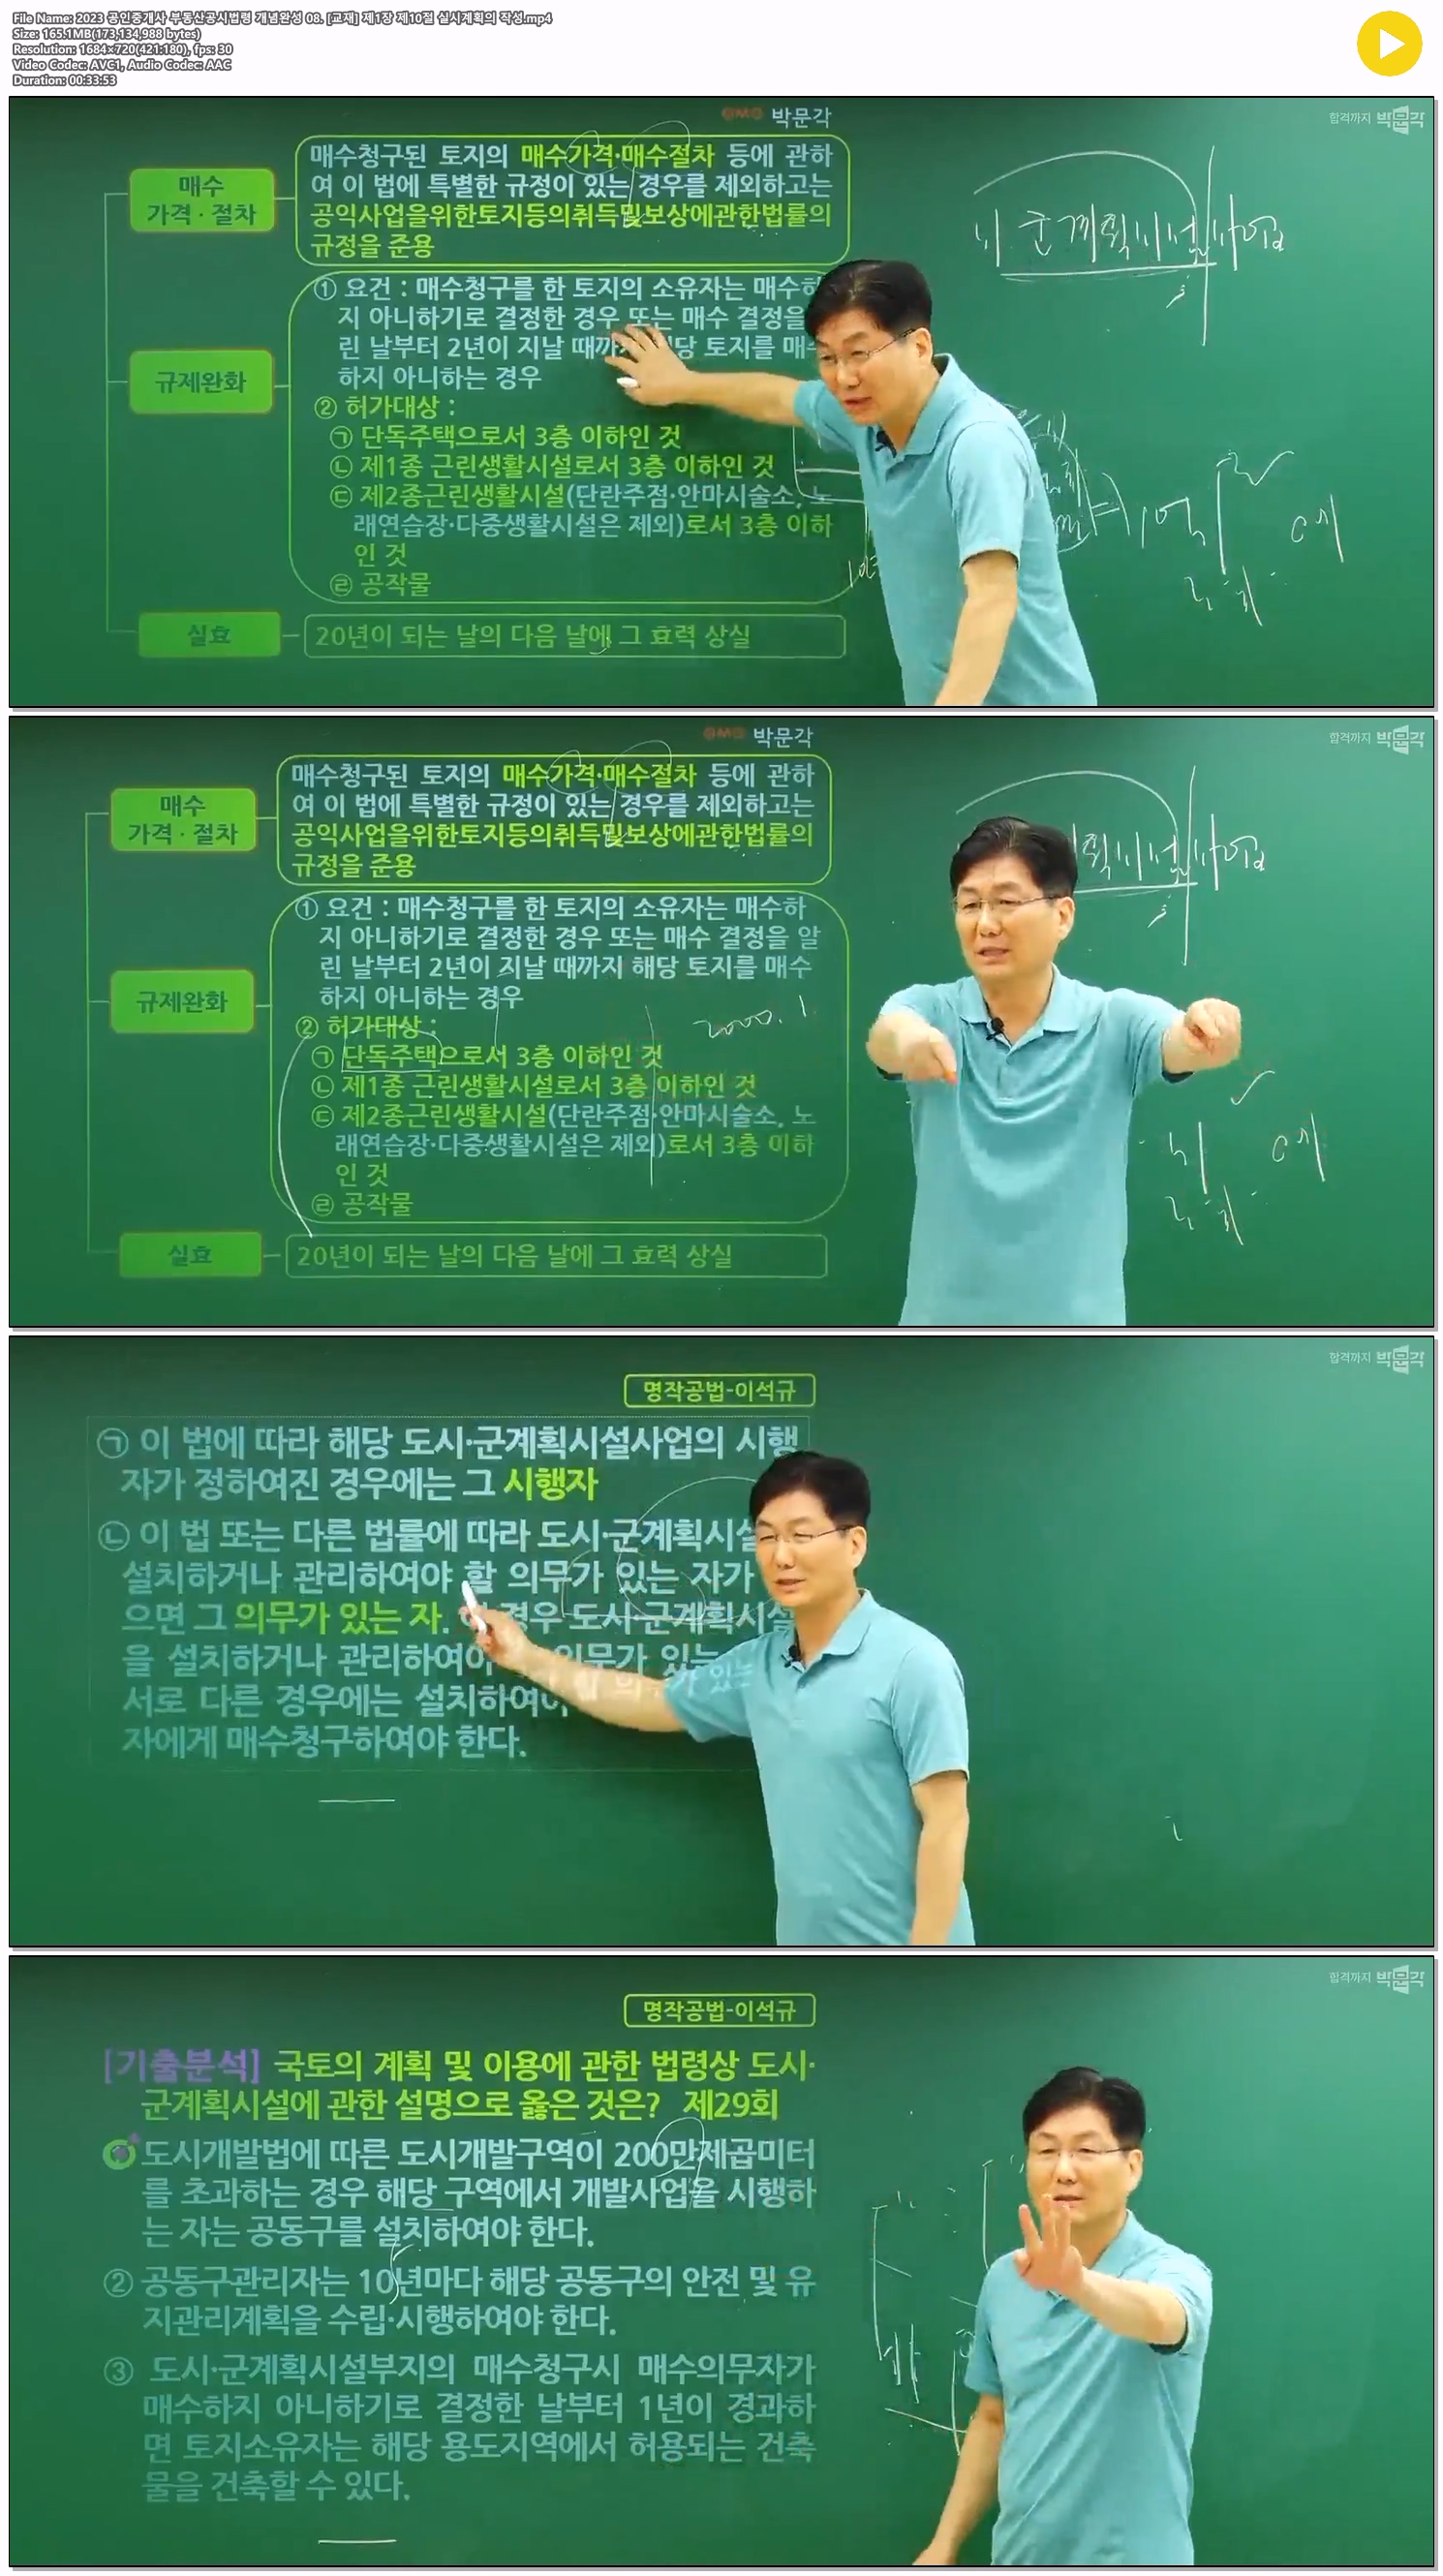 File Name: 2023 공인중개사 부동산공시법령 개념완성 08. [교재] 제1장 제10절 실시계획의 작성.mp4
Size: 165.1MB(173,134,988 bytes)
Resolution: 1684×720(421:180), fps: 30
Video Codec: AVC1, Audio Codec: AAC
Duration: 00:33:53
박문각
합격까지 박문각
매수
가격·절차
매수청구된 토지의 매수가격·매수절차 등에 관하
여 이 법에 특별한 규정이 있는 경우를 제외하고는
공익사업을위한토지등의취득및보상에관한법률의
규정을 준용
규제완화
① 요건 : 매수청구를 한 토지의 소유자는 매수하
지 아니하기로 결정한 경우 또는 매수 결정을
린 날부터 2년이 지날 때까지 당 토지를 매
하지 아니하는 경우
② 허가대상 :
㉠ 단독주택으로서 3층 이하인 것
㉡ 제1종 근린생활시설로서 3층 이하인 것
㉢ 제2종근린생활시설(단란주점·안마시술소, 노
래연습장·다중생활시설은 제외)로서 3층 이하
인 것
㉣ 공작물
실효
20년이 되는 날의 다음 날에 그 효력 상실
시 군계획시설사업
박문각
합격까지 박문각
매수
가격·절차
매수청구된 토지의 매수가격·매수절차 등에 관하
여 이 법에 특별한 규정이 있는 경우를 제외하고는
공익사업을위한토지등의취득및보상에관한법률의
규정을 준용
규제완화
① 요건 : 매수청구를 한 토지의 소유자는 매수하
지 아니하기로 결정한 경우 또는 매수 결정을 알
린 날부터 2년이 지날 때까지 해당 토지를 매수
하지 아니하는 경우
② 허가대상 :
㉠ 단독주택으로서 3층 이하인 것
㉡ 제1종 근린생활시설로서 3층 이하인 것
㉢ 제2종근린생활시설(단란주점·안마시술소, 노
래연습장·다중생활시설은 제외)로서 3층 이하
인 것
㉣ 공작물
실효
20년이 되는 날의 다음 날에 그 효력 상실
획시설사업
2000. 1.
합격까지 박문각
명작공법-이석규
㉠ 이 법에 따라 해당 도시·군계획시설사업의 시행
자가 정하여진 경우에는 그 시행자
㉡ 이 법 또는 다른 법률에 따라 도시·군계획시설
설치하거나 관리하여야 할 의무가 있는 자가
으면 그 의무가 있는 자. 이 경우 도시·군계획시설
을 설치하거나 관리하여야 의무가 있는
서로 다른 경우에는 설치하여야
자에게 매수청구하여야 한다.
합격까지 박문각
명작공법-이석규
[기출분석] 국토의 계획 및 이용에 관한 법령상 도시·
군계획시설에 관한 설명으로 옳은 것은? 제29회
도시개발법에 따른 도시개발구역이 200만제곱미터
를 초과하는 경우 해당 구역에서 개발사업을 시행하
는 자는 공동구를 설치하여야 한다.
② 공동구관리자는 10년마다 해당 공동구의 안전 및 유
지관리계획을 수립·시행하여야 한다.
③ 도시·군계획시설부지의 매수청구시 매수의무자가
매수하지 아니하기로 결정한 날부터 1년이 경과하
면 토지소유자는 해당 용도지역에서 허용되는 건축
물을 건축할 수 있다.